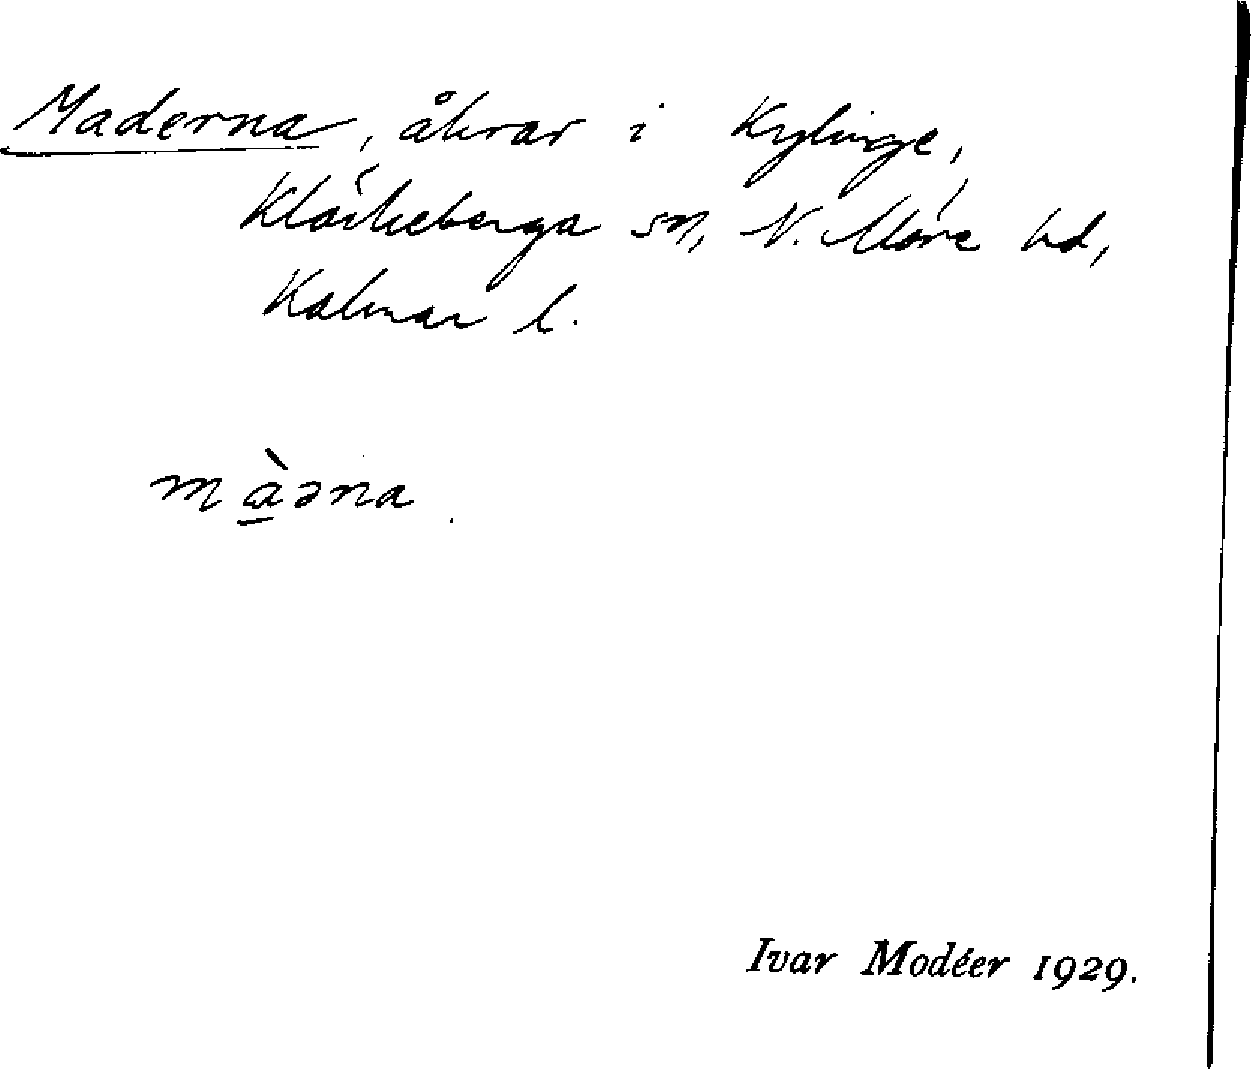 Maderna, åkrar i Kylinge,
Kläckeberga sn, N. Möre hd,
Kalmar l.
màəna.
Ivar Modéer 1929.